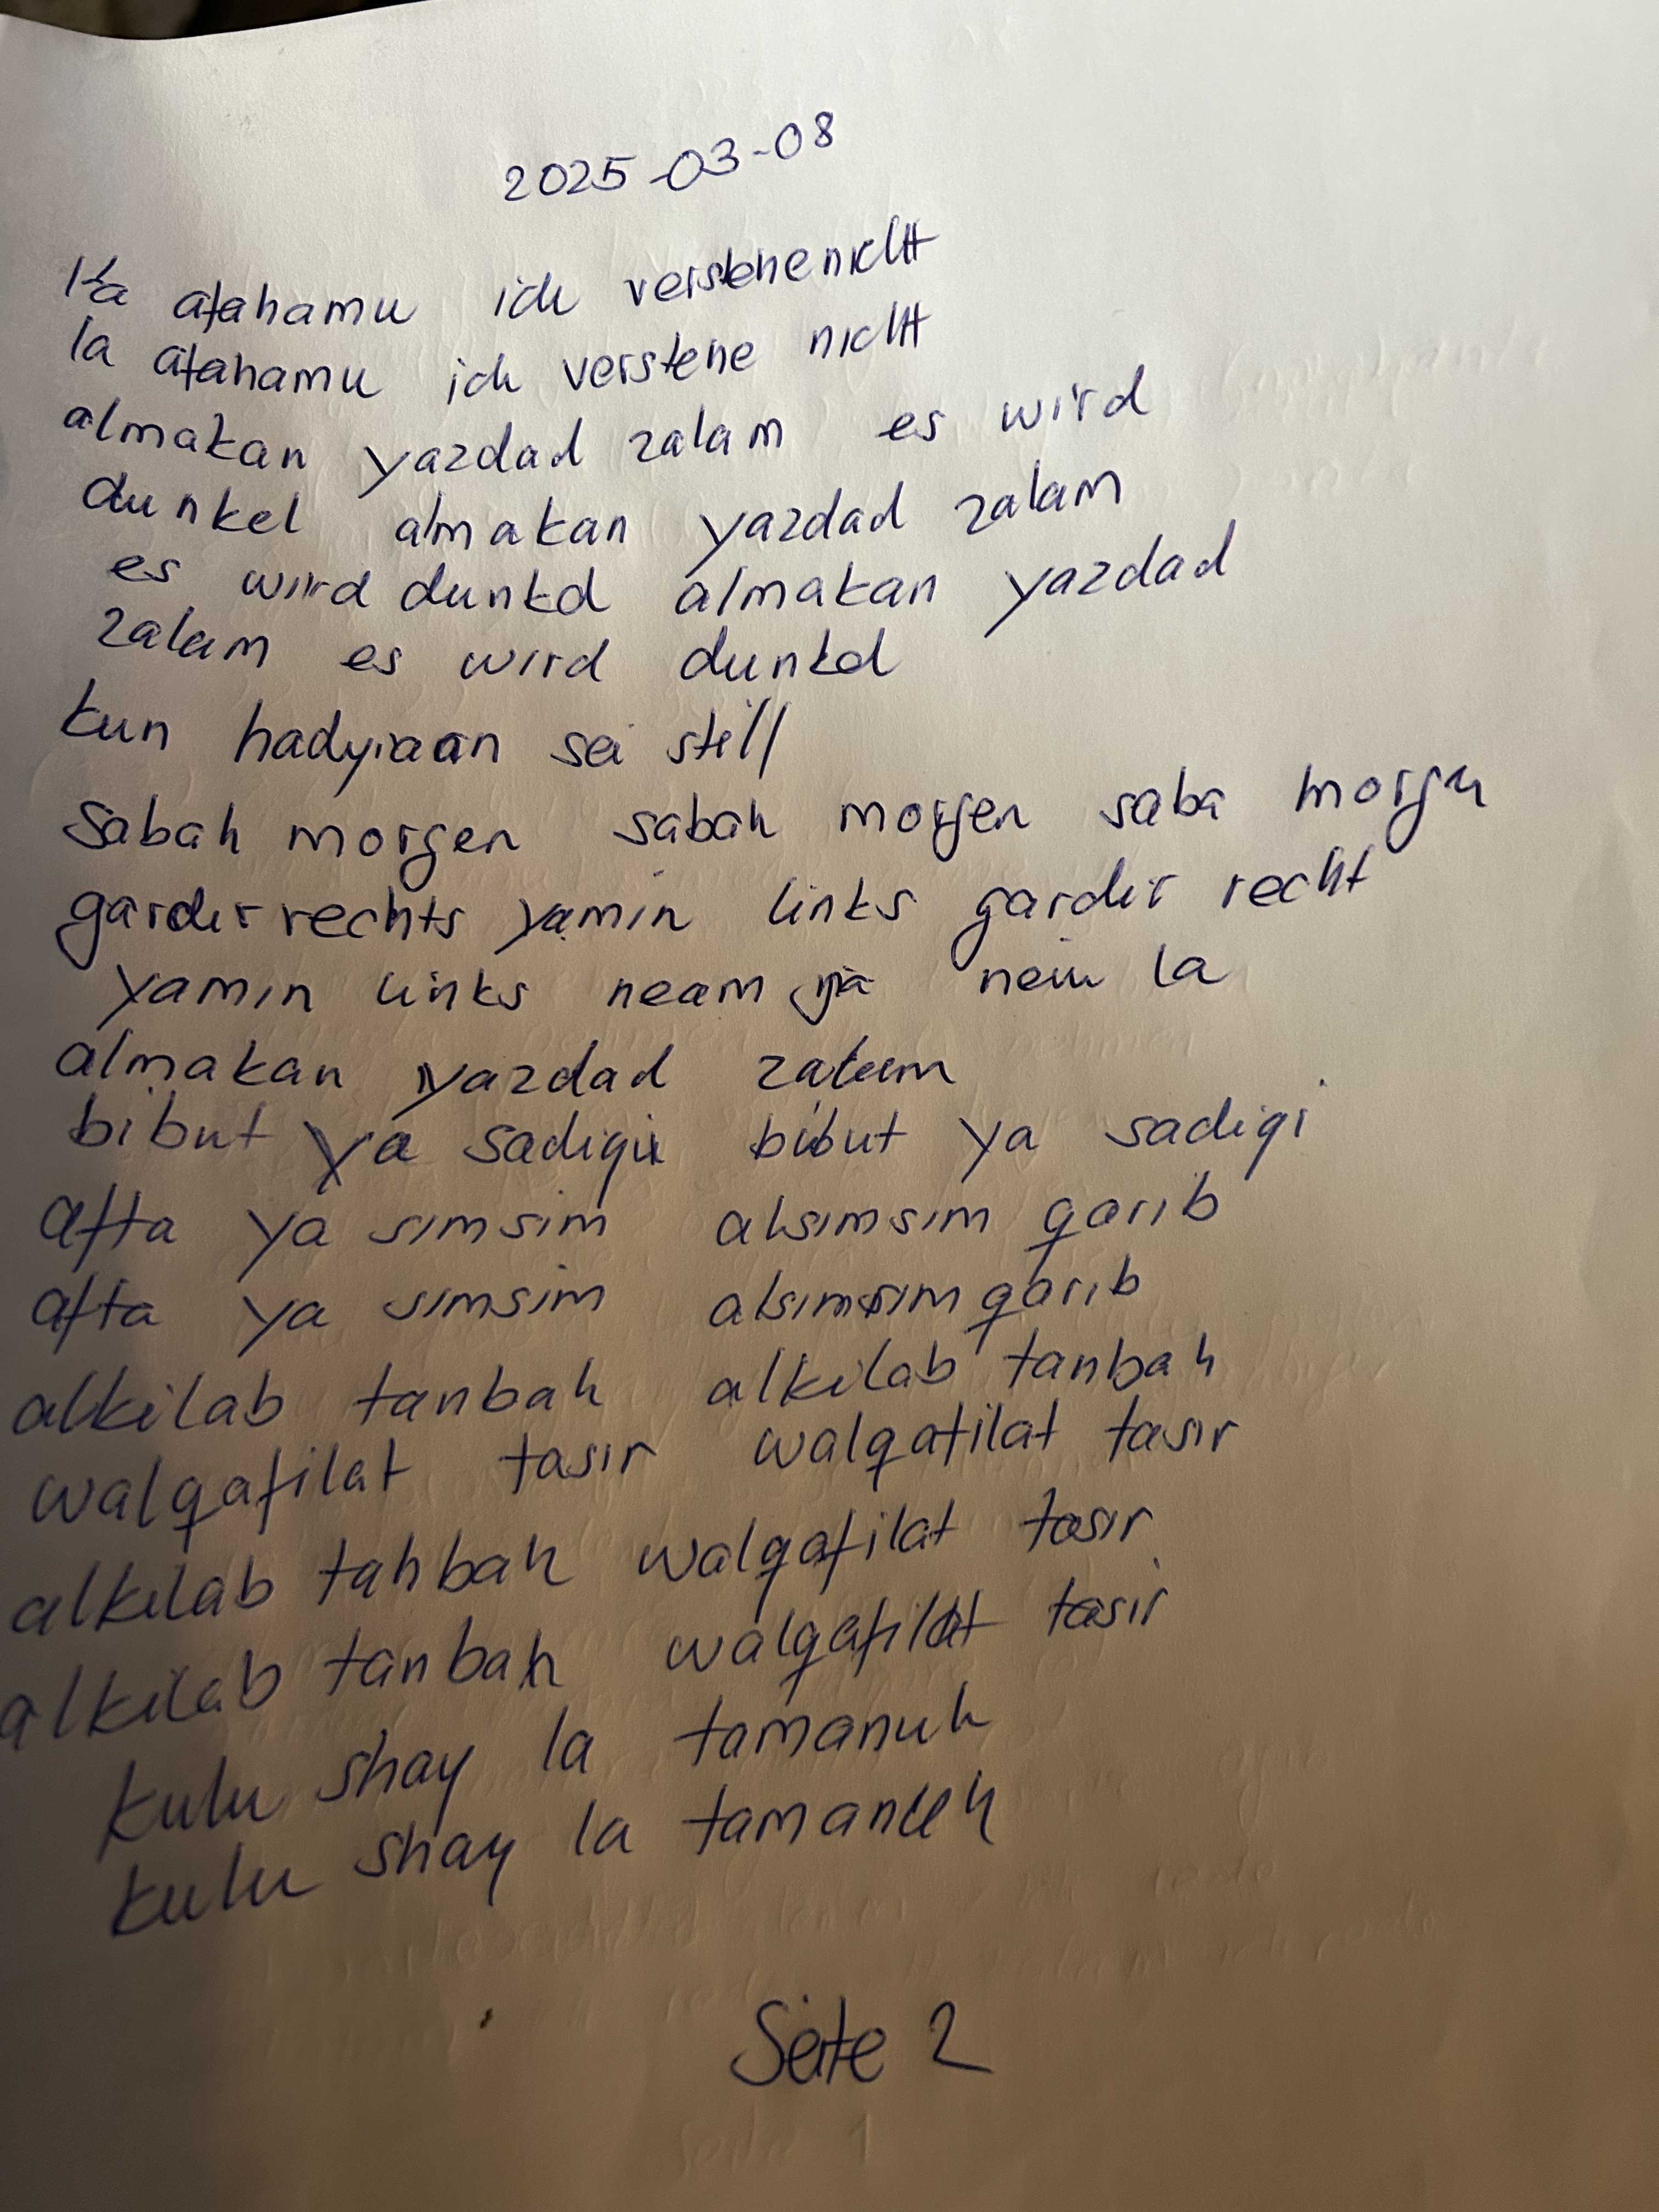 2025-03-08
la afahamu ich verstehe nicht
la afahamu ich verstehe nicht
almakan yazdad zalam es wird
dunkel almakan yazdad zalam
es wird dunkel almakan yazdad
zalam es wird dunkel
kun hadyiaan sei still
Sabah morgen sabah morgen saba morgen
garder rechts yamin links garder recht
yamin links neam ja nein la
almakan yazdad zalam
bibut ya sadiqi bibut ya sadiqi
afta ya simsim alsimsim qarib
afta ya simsim alsimsim qarib
alkilab tanbah alkilab tanbah
walqafilat tasir walqafilat tasir
alkilab tanbah walqafilat tasir
alkilab tanbah walqafilat tasir
kulu shay la tamanuh
kulu shay la tamanuh
Seite 2